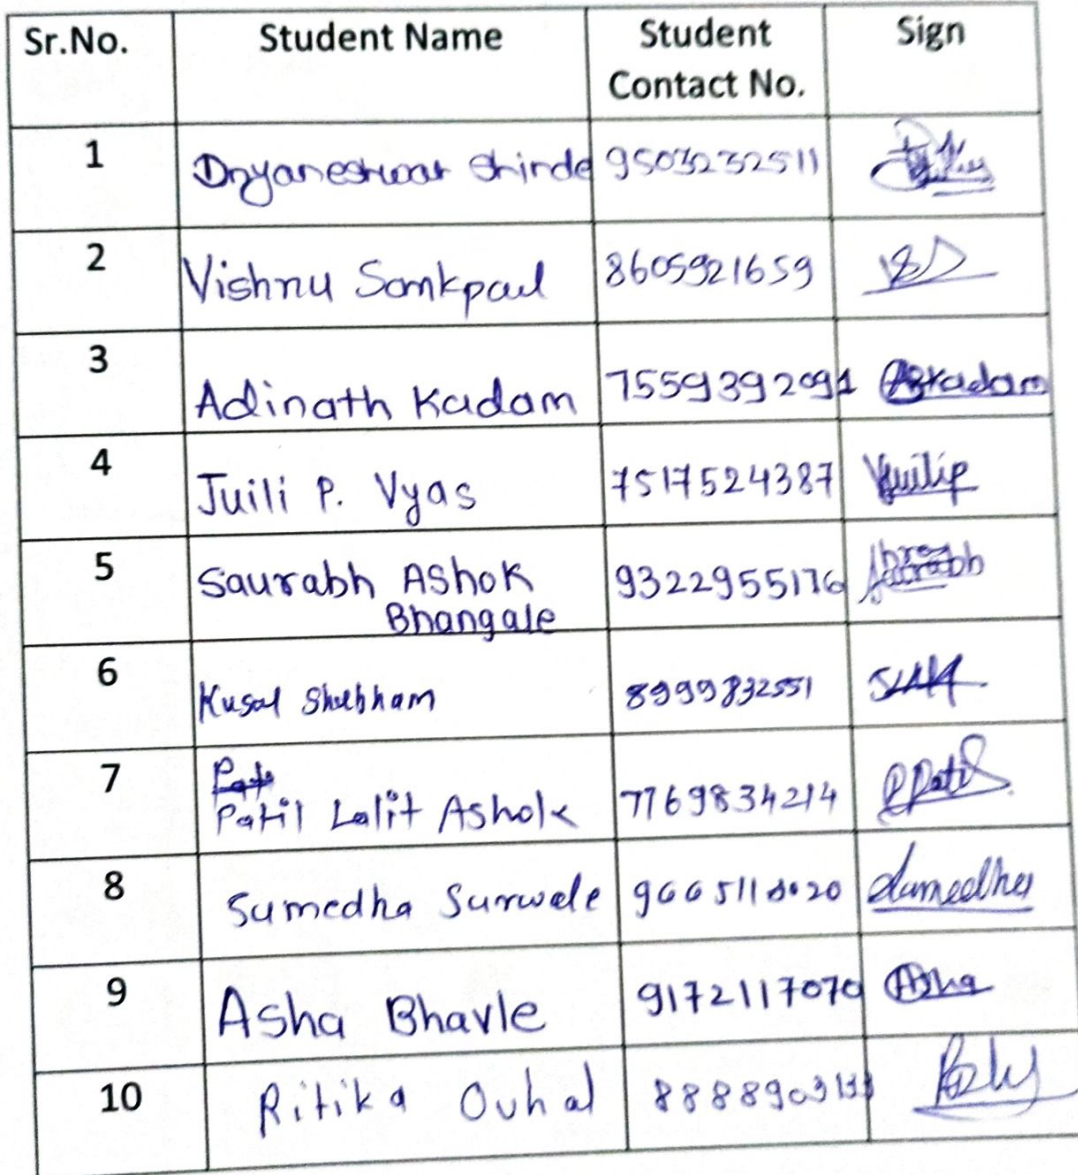 Sr.No. Student Name Student Contact No. Sign
1 Dnyaneshwar Shinde 9503232511
2 Vishnu Somkpal 8605921659
3 Adinath Kadam 7559392091 Askadam
4 Juili P. Vyas 7517524387 Vjuilip
5 Saurabh AShok 9322955176
Bhangale
6 Kusal Shubham 8999832551
7 Pati
Patil Lalit Ashok 7769834214 Patil
8 Sumedha Surwade 9665118020 Sumedha
9 Asha Bhavle 9172117070 Asha
10 Ritika Ovhal